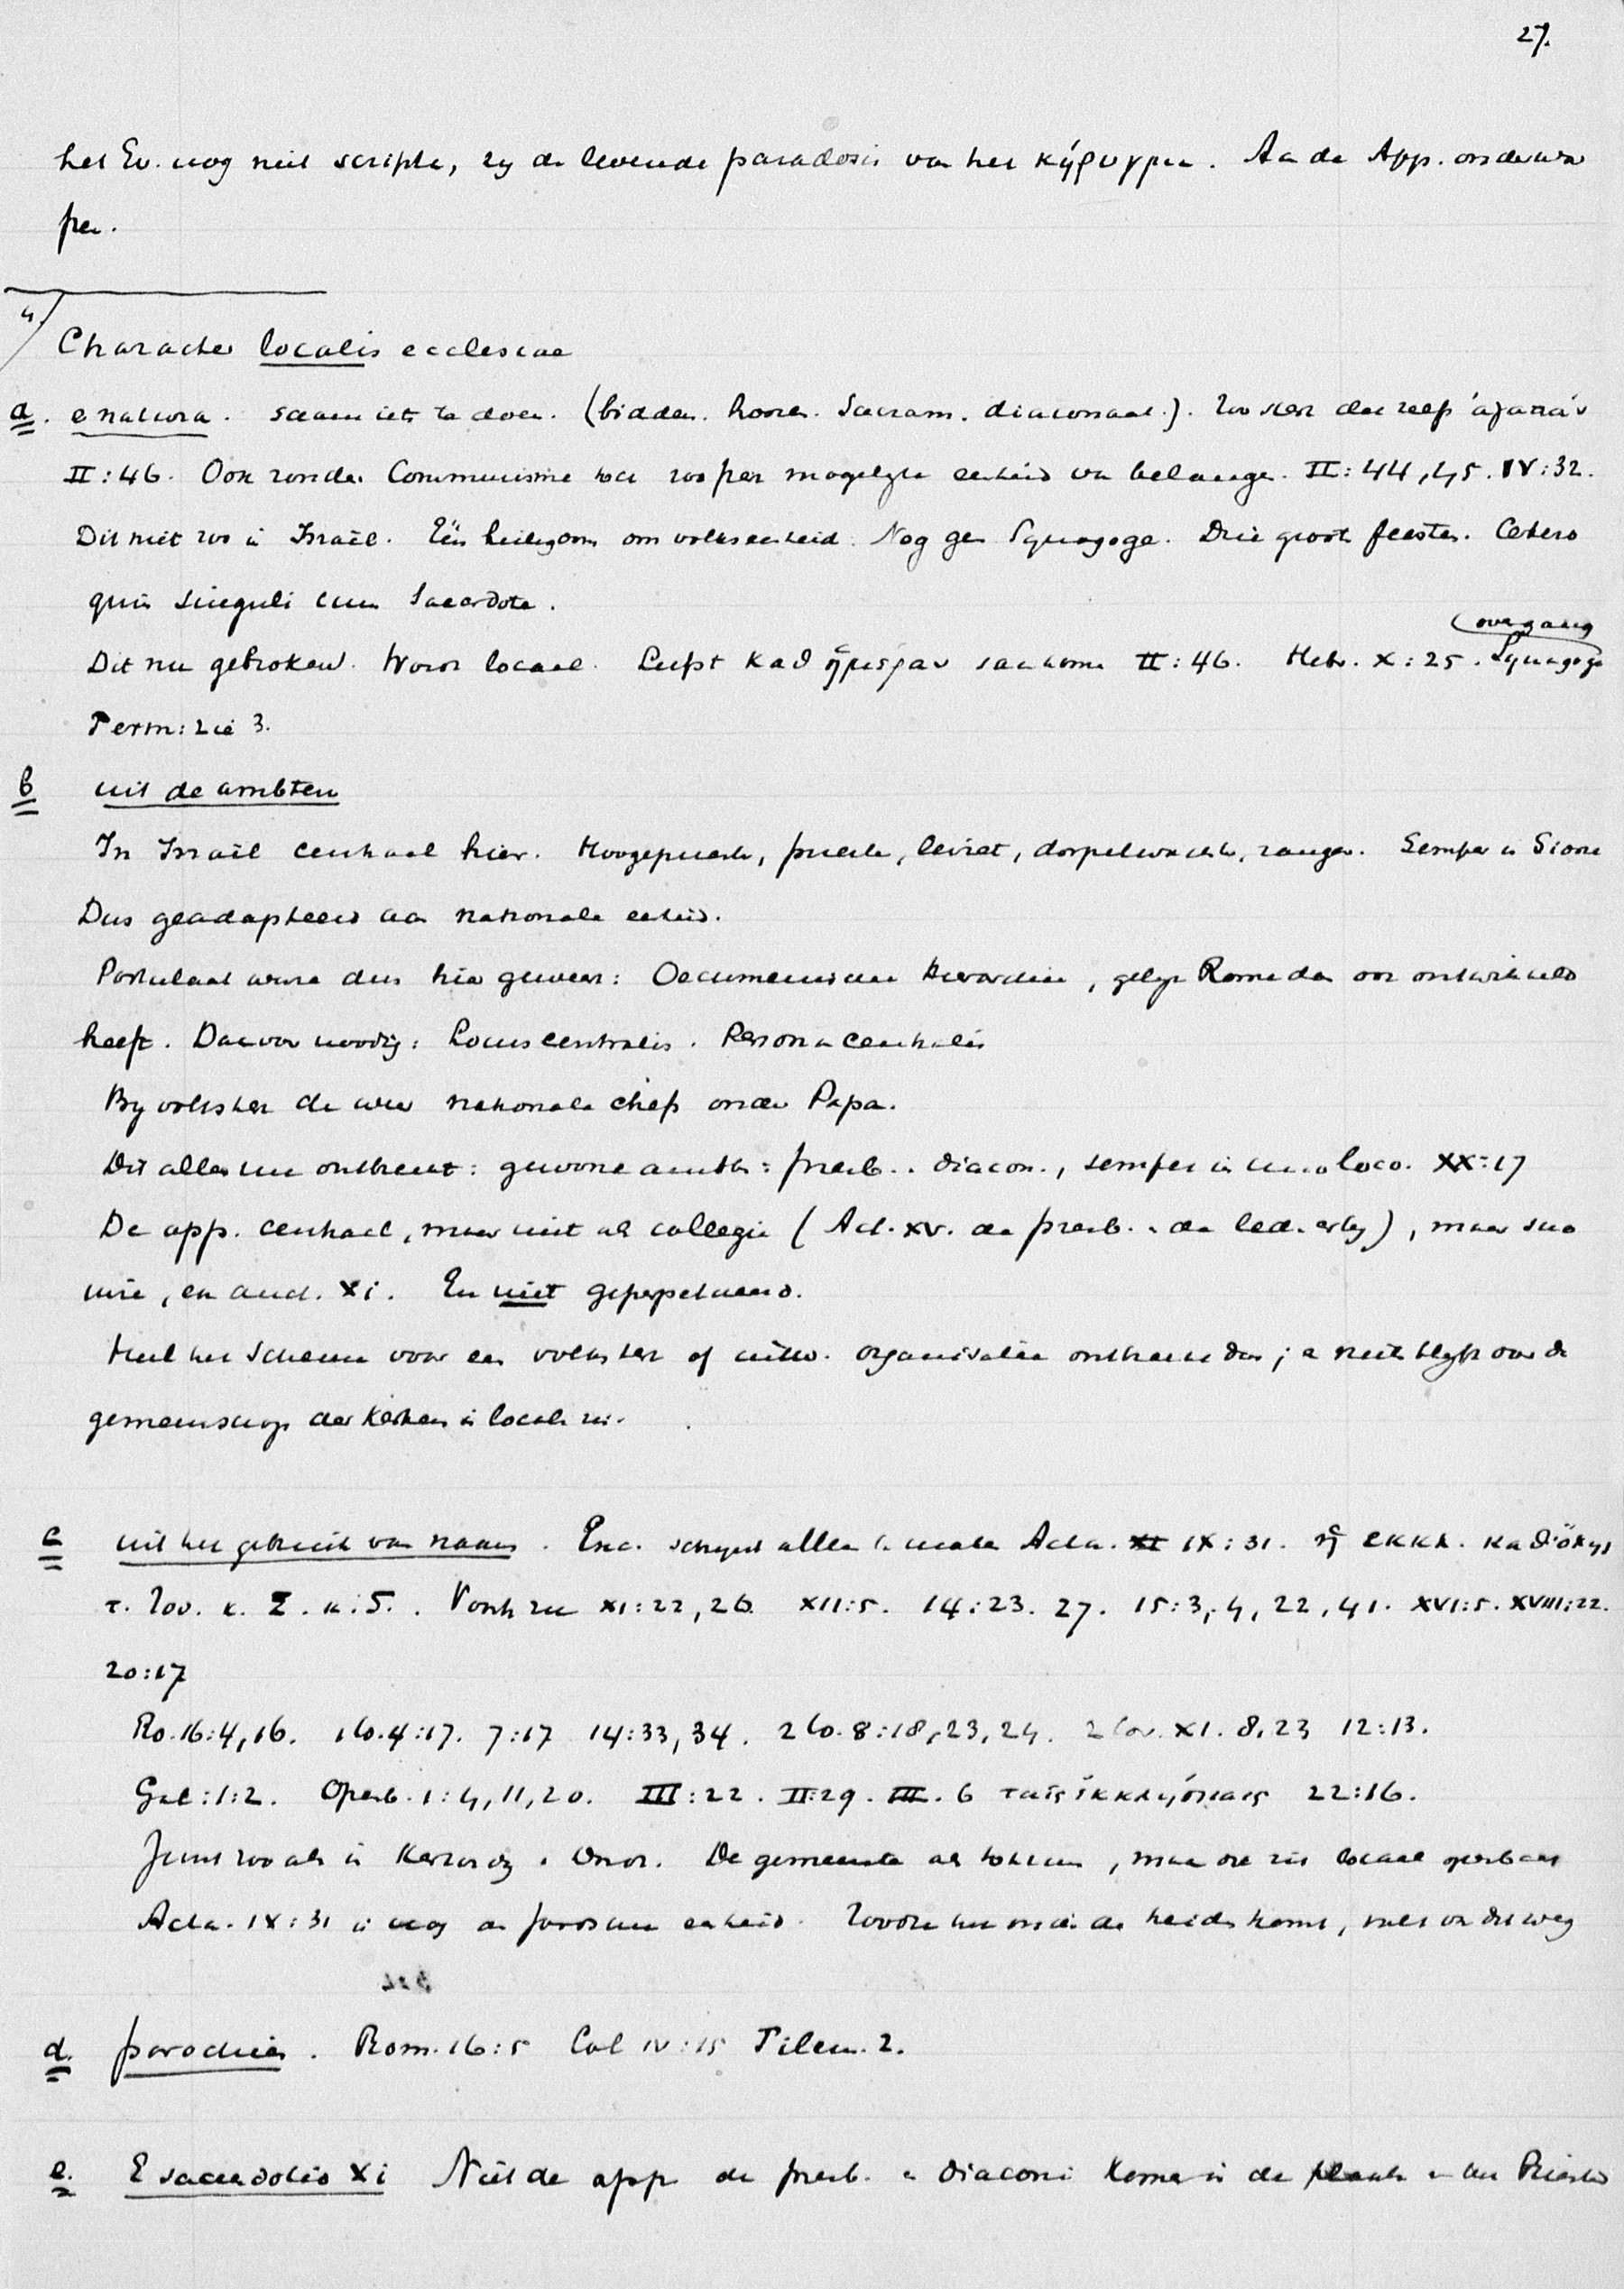 27.
het Ev. nog niet scripta, zy de levende paradosis van het κήρυγμα. Aan de App. onderwor
pen.
4.
Character localis ecclesiae
a. e natura. saam iets te doen. (bidden. hooren. Sacram. diaconaal.). Zoo sterk dat reeds
II:46. Ook zonder Communisme toch zoo ver mogelyke eenheid van belangen. II:44,45. IV:32.
Dit niet zoo in Israël. Één heiligdom om volkseenheid. Nog geen Synagoge. Drie groote feesten. Cetero
quin singuli cum Sacerdote.
(overgang
Dit nu gebroken. Wordt locaal. Liefst καθ ἡμέραν saamkomen II:46. Hebr. X:25. Synagoge
Perm: zie 3.
b uit de ambten
In Israël centraal hier. Hoogepriester, priester, leviet, dorpelwachter, zanger. Semper in Sione
Dus geadapteerd aan nationale eenheid.
Postulaat ware dus hier geweest: Oecumenische hierarchie, gelyk Rome dan ook ontwikkeld
heeft. Daarvoor noodig: Locus centralis. Persona centralis
By volkskerk de wer nationale chefs onder Papa.
Dit alles nu ontbreekt: gewone ambten: presb. diacon., semper in uno loco. XX:17
De app. centraal, maar niet als collegie (Act. XV. de presb. en de leden erby), maar suo
iure, en auct. Xi. En niet geperpetueerd.
Heel het schema voor een volkskerk of univ. organisatie ontbreekt dus; en niets blyft over de
gemeenschap der kerken in locale zin.
c uit het gebruik van naam. Exc. schynt alleen te maken Acta. IX:31. ἡ ἐκκλ. καθ' ὅλης
τ. Ἰου. κ. Σ. κ. Γ. Voorts zie XI:22,26. XII:5. 14:23. 27. 15:3,4,22,41. XVI:5. XVIII:22.
20:17
Ro. 16:4,16. 1Co. 4:17. 7:17 14:33,34. 2Co. 8:18,23,24. 2Cor. XI. 8,23 12:13.
Gal:1:2. Openb. 1:4,11,20. III:22. II:29. III. 6 ταῖς ἐκκλησίαις 22:16.
Juist zooals in. De gemeente als, maar die zich locaal openbaart
Acta. IX:31 is nog de Joodsche eenheid. Zoodra het onder de heidenen komt, valt ook dit weg
d. parochien. Rom. 16:5 Col IV:15 Filem. 2.
e. E sacerdotio Xi Niet de app de presb. en diaconi komen in de plaats van den Priester